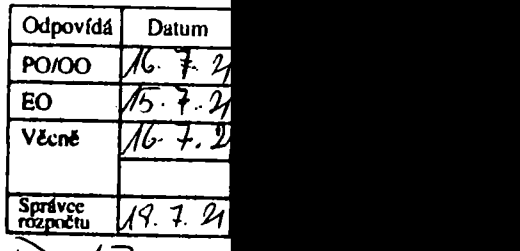 Odpovídá Datum
PO/OO 16. 7. 21
EO 15. 7. 21
Věcně 16. 7. 2
Správce
rozpočtu 19. 7. 21